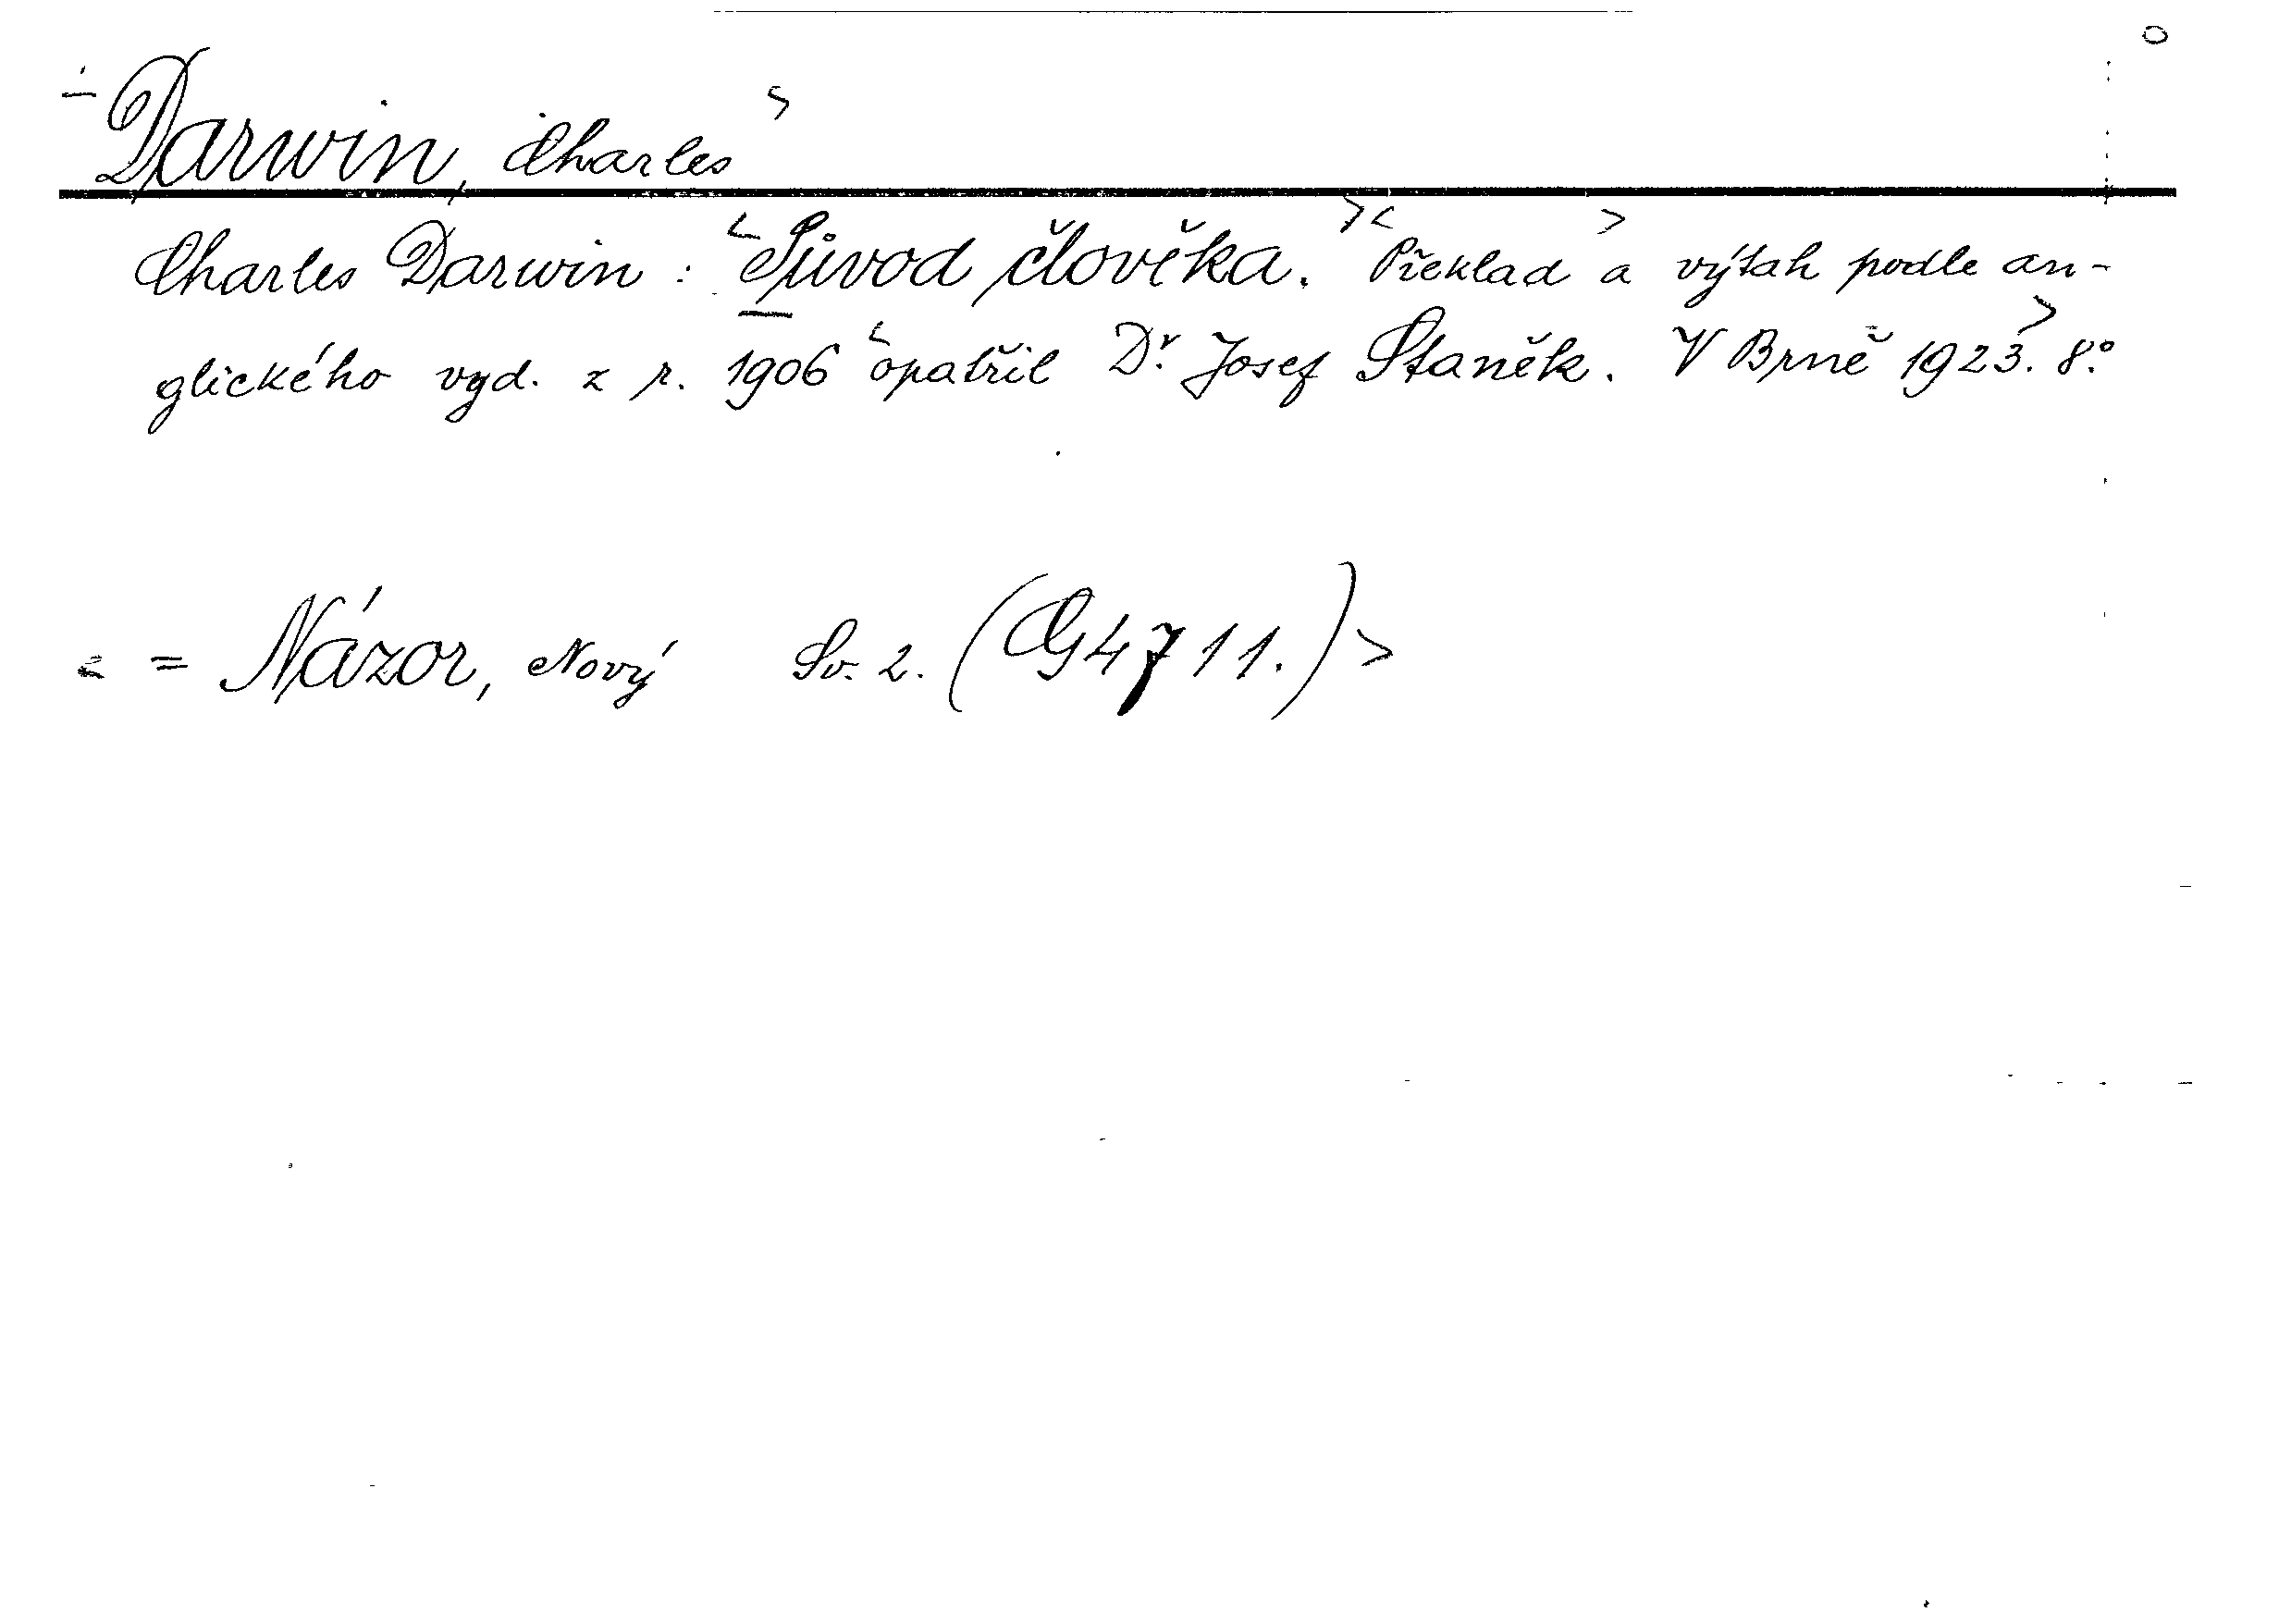 Darwin, Charles
Charles Darwin: Původ člověka. Překlad a výtah podle an-
glického vyd. z r. 1906 opatřil Dr. Josef Staněk. V Brně 1923. 8.°
= Názor, Nový Sv. 2. (G 4711.) >